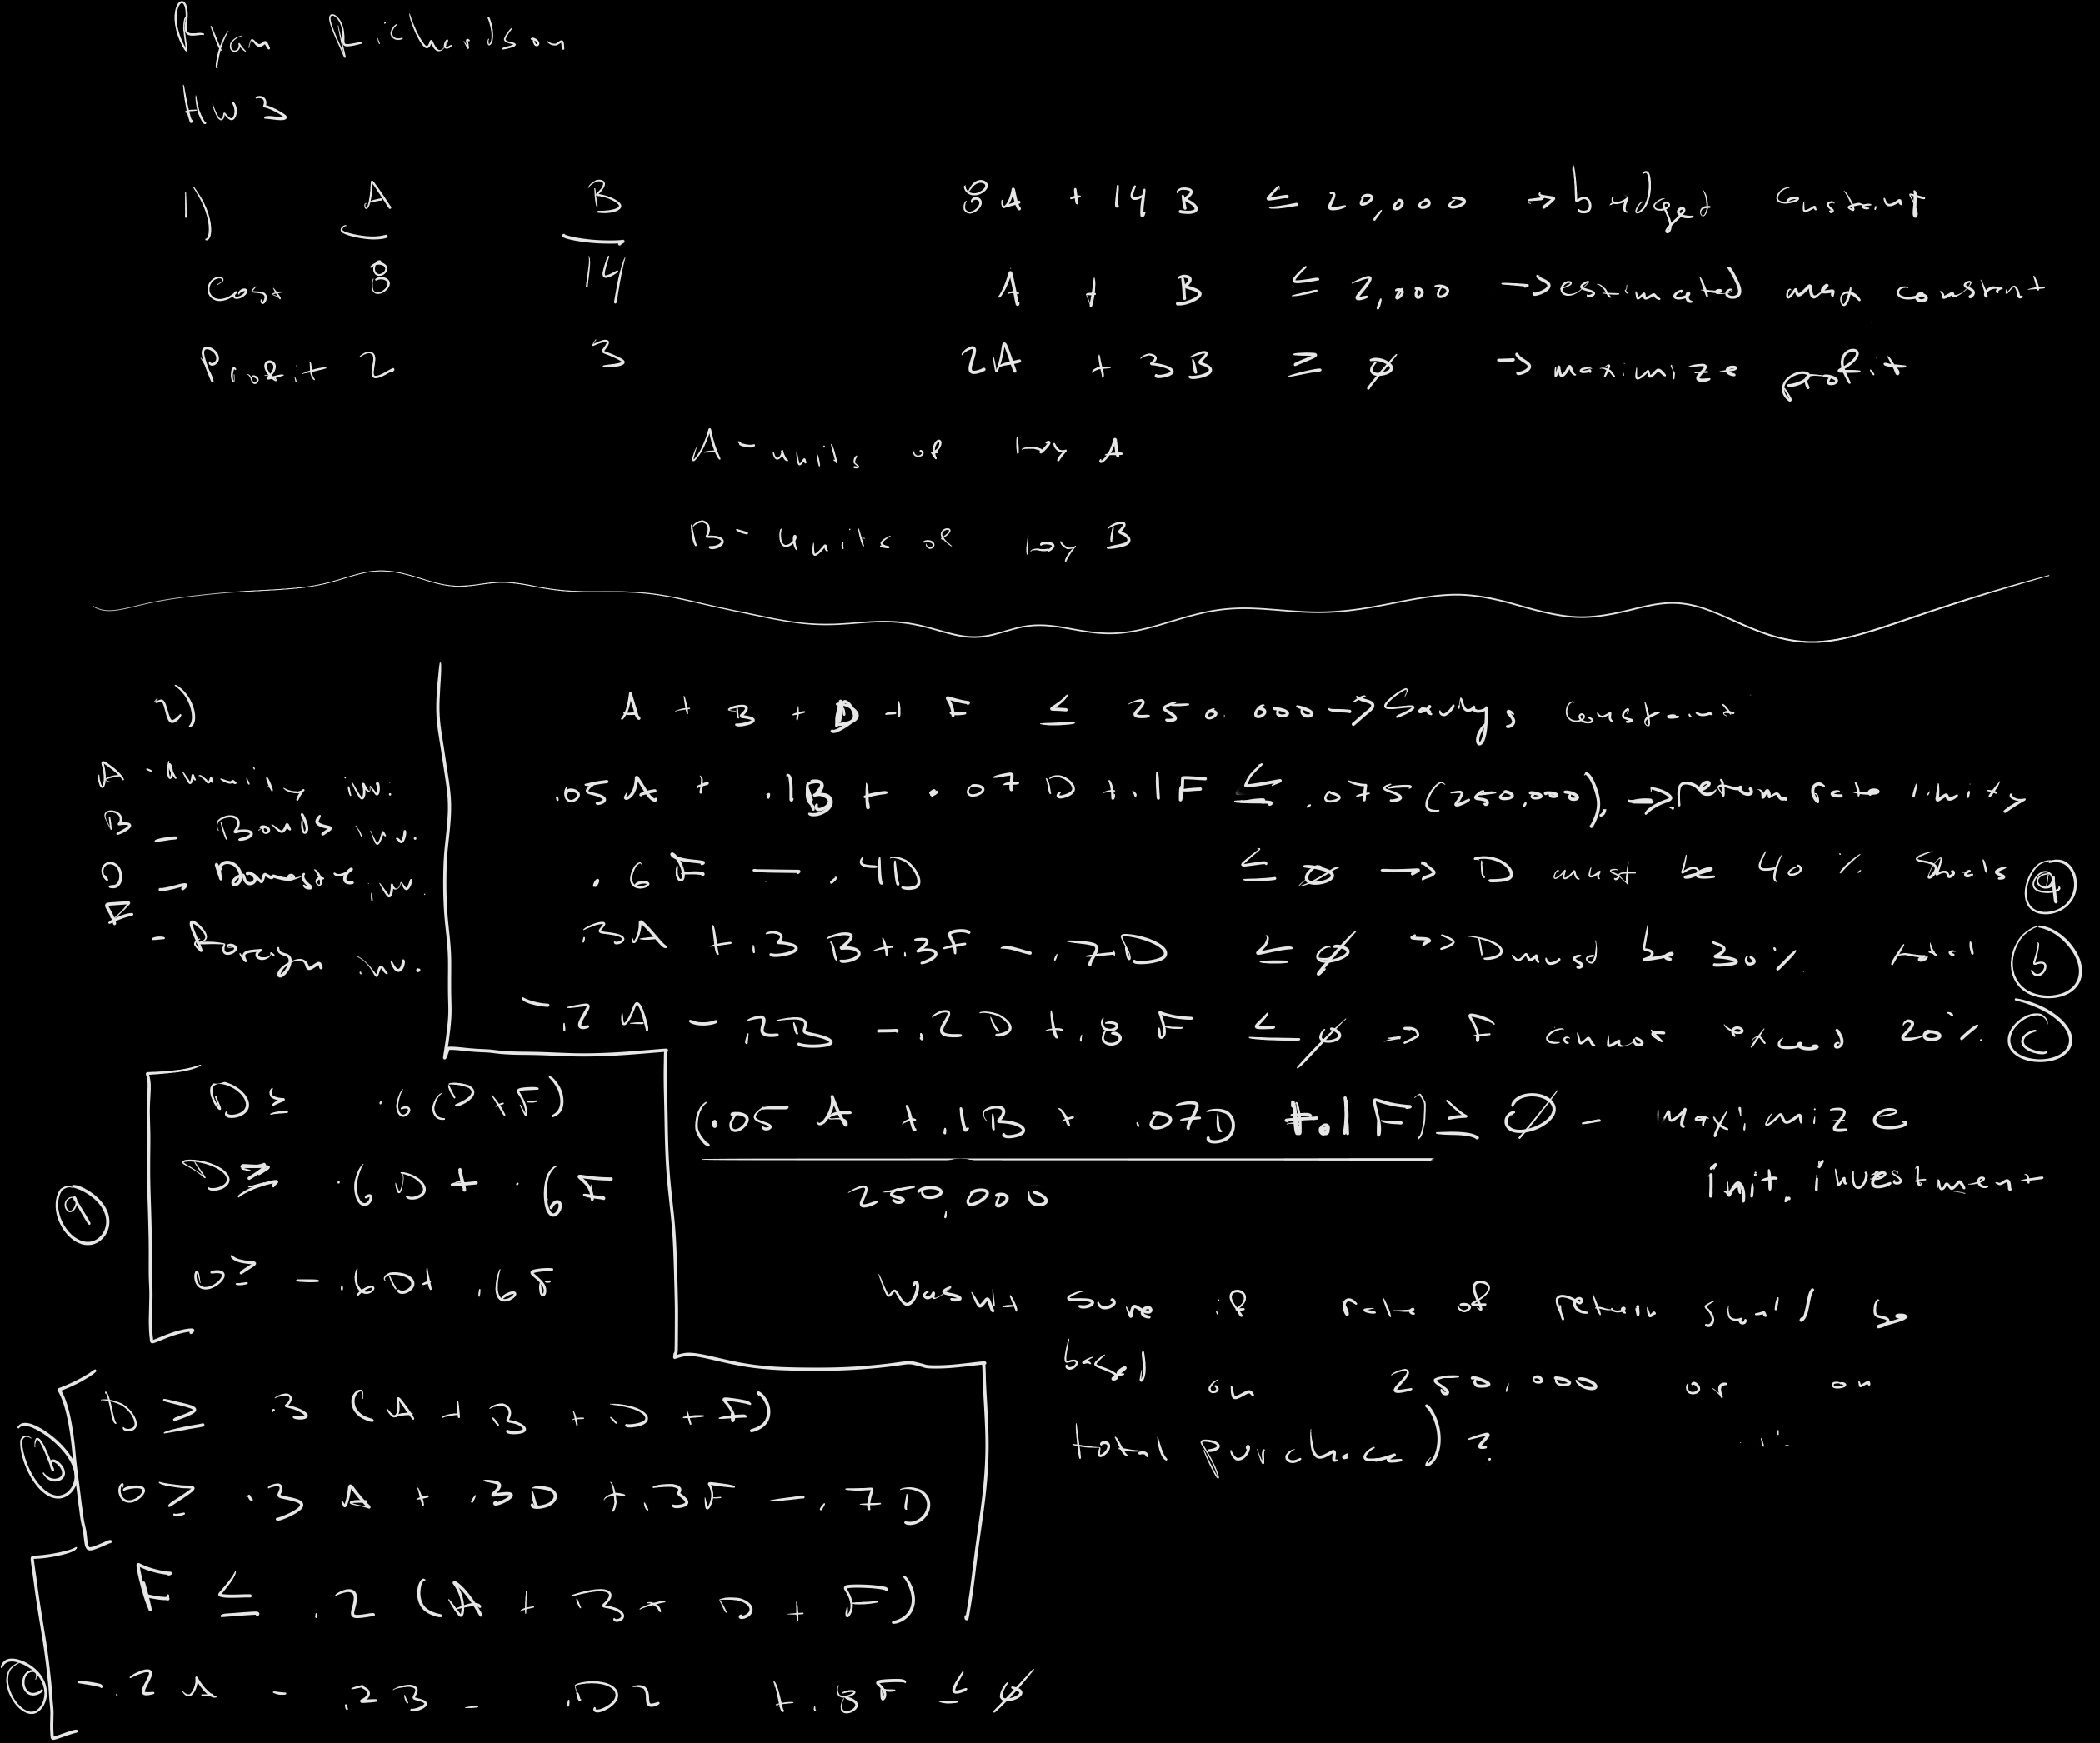 Ryan Richardson
HW3
1) A B
Cost 8 14
Profit 2 3
8A + 14B ≤ 20,000 → budget constraint
A + B ≤ 2,000 → estimated max constraint
2A + 3B ≥ ∅ → maximize profit
A - units of toy A
B - units of toy B
2)
A - Annuity inv.
B - Bonds inv.
D - Domestic inv.
F - Foreign inv.
A + B + D + F ≤ 250,000 → Savings constraint
.05A + .1B + .07D + .1F ≤ .075(250,000) → return rate
.6F - .4D ≤ ∅ → D must be 40% (a)
.3A + .3B + .3F - .7D ≤ ∅ → D must be 30% total (b)
-.2A - .2B - .2D + .8F ≤ ∅ → F cannot exceed 20% (c)
(.05A + .1B + .07D + .1F) ≥ ∅ - maximize
250,000
init. investment
Wasn't sure if rate of return should be
based on 250,000 or on
total purchase) ?
(a)
D ≥ .6(D+F)
D ≥ .6D + .6F
0 ≥ -.6D + .6F
(b)
D ≥ .3 (A + B + D + F)
0 ≥ .3A + .3D + .3F - .7D
(c)
F ≤ .2 (A + B + D + F)
-.2A - .2B - .D2 + .8F ≤ ∅